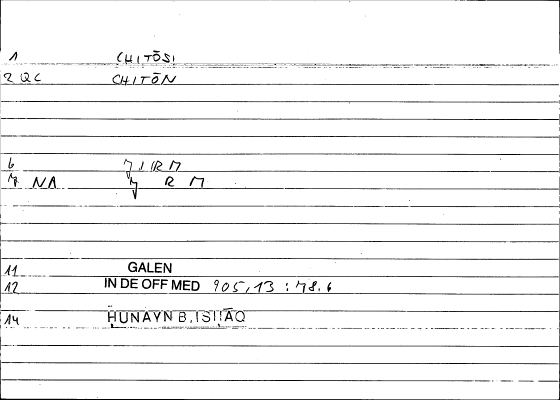 1 CHITŌSI
2 QC CHITŌN
6 ǦIRM
7 NA Ǧ R M
11 GALEN
12 IN DE OFF MED 905,13 : 78.6
14 ḤUNAYN B. ISḤĀQ